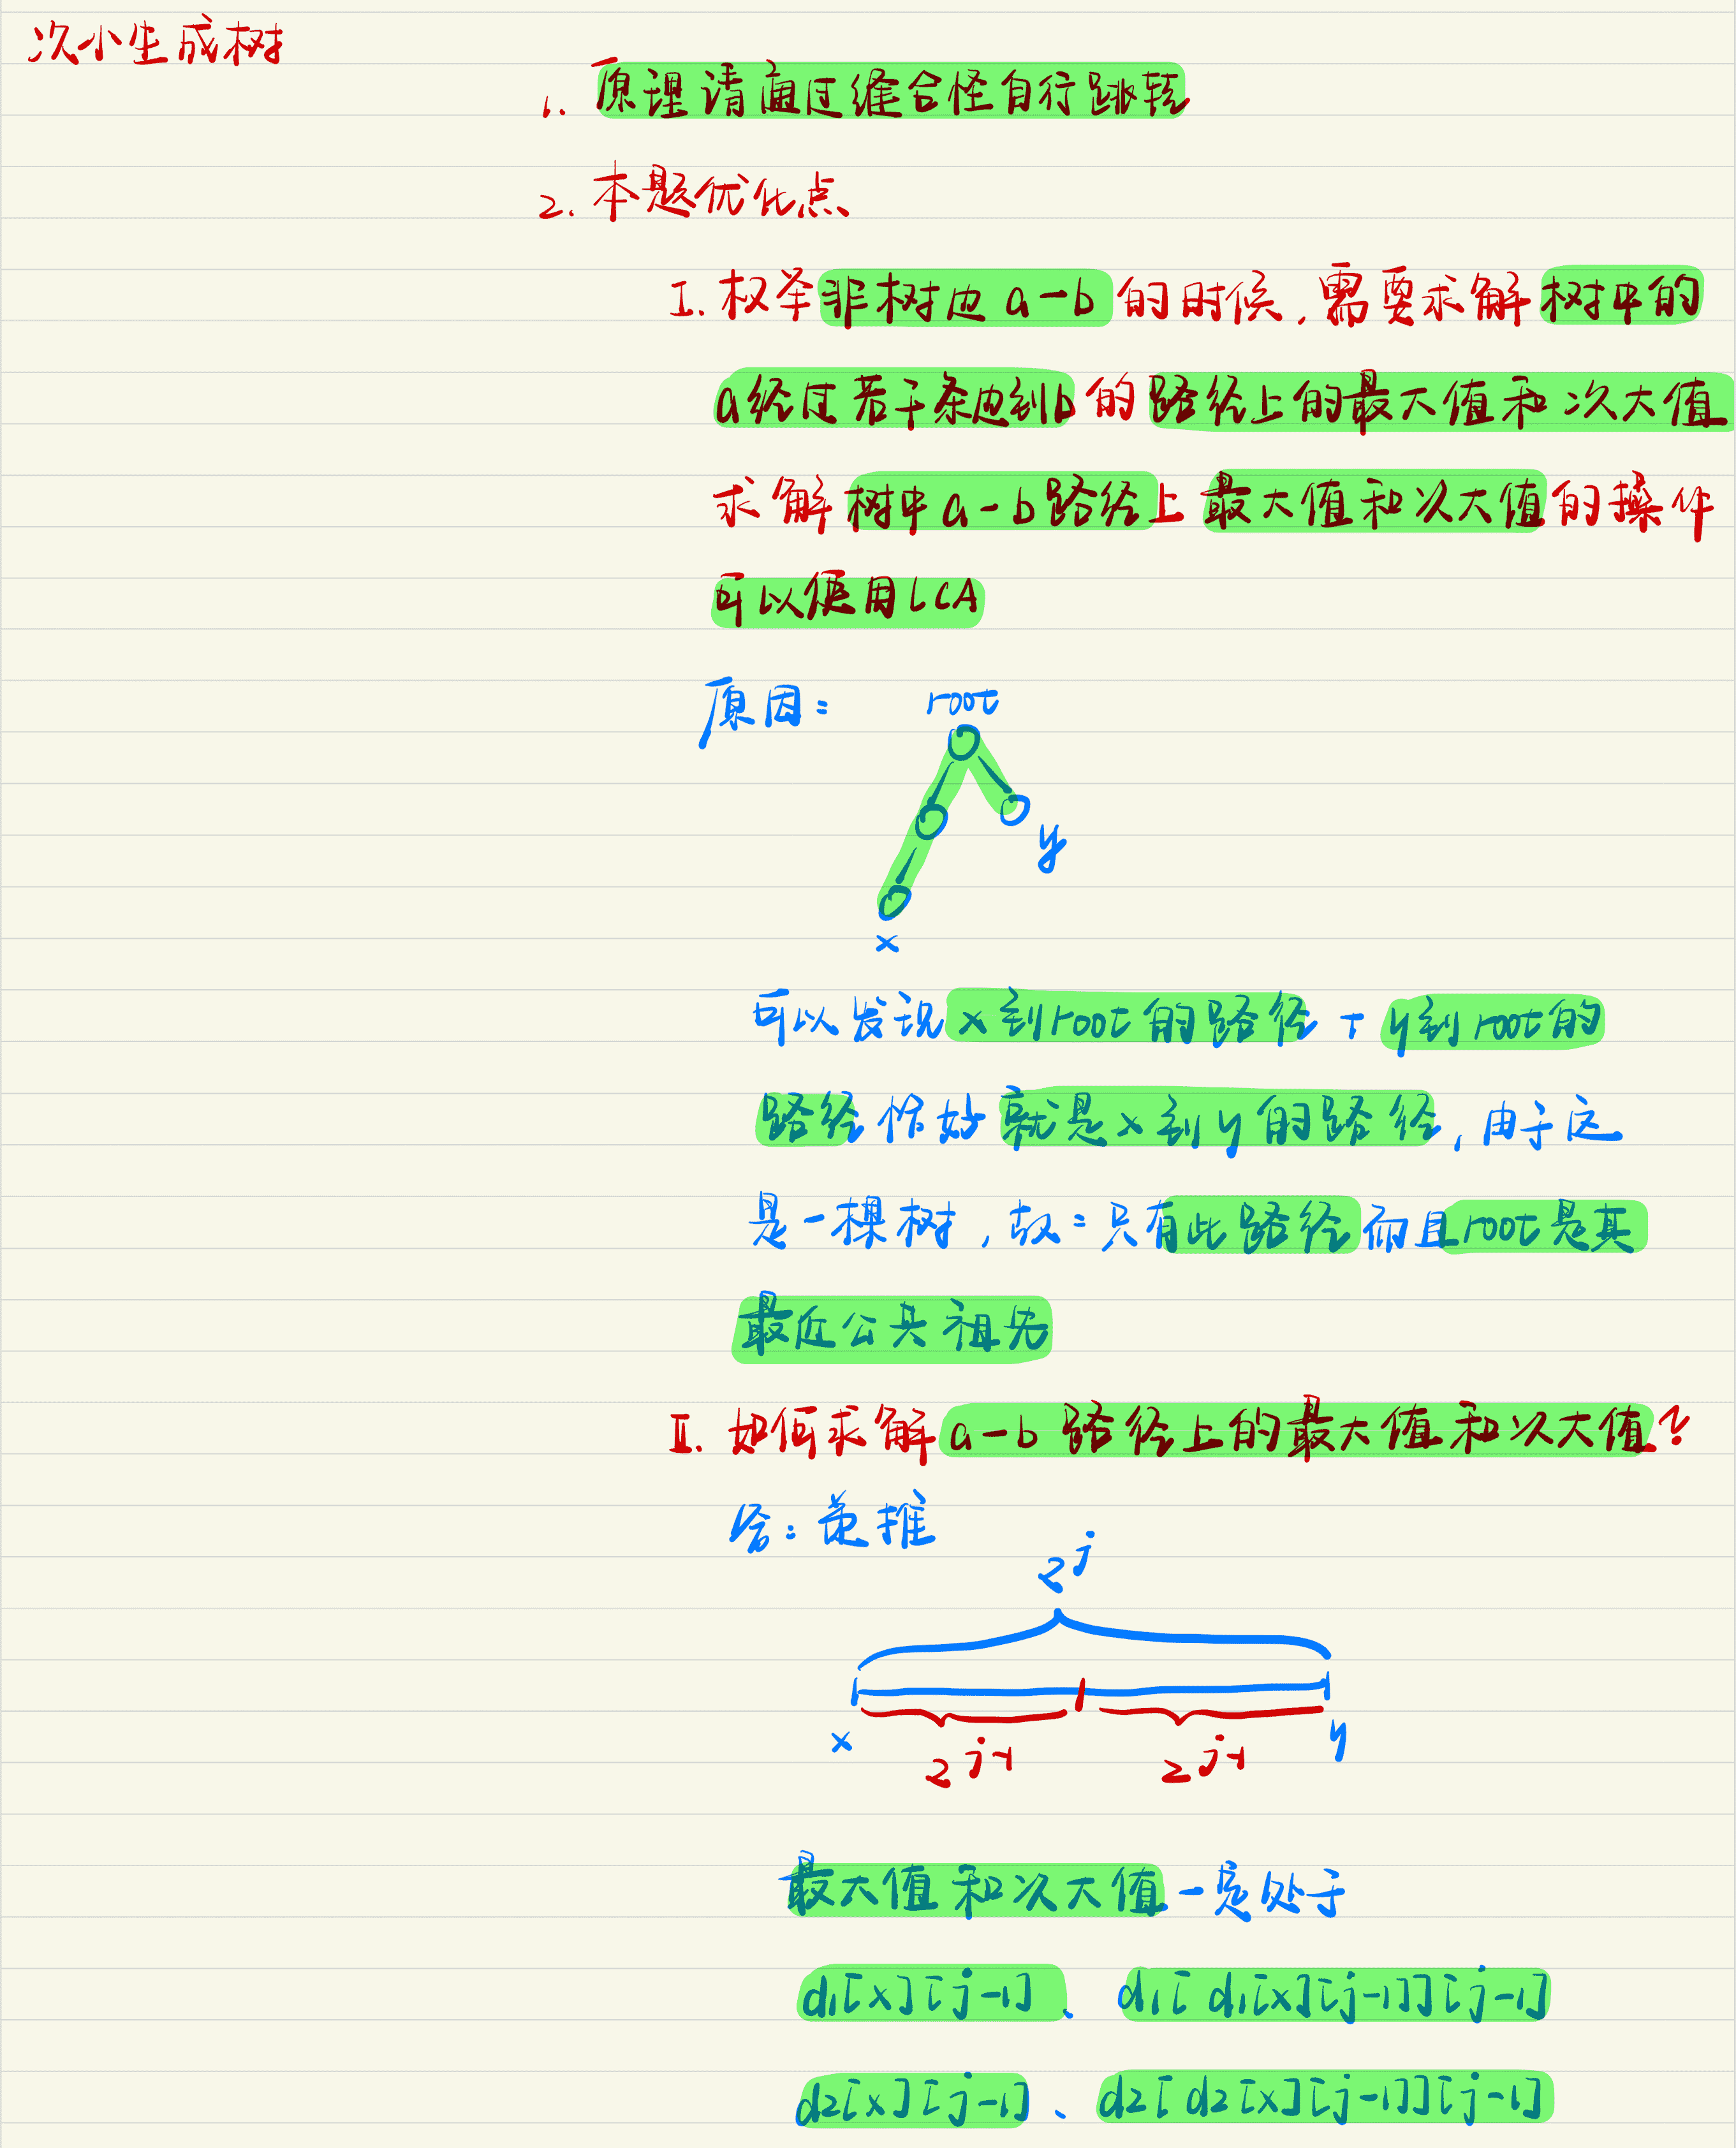 次小生成树
1. 原理请通过缝合怪自行跳转
2. 本题优化点
I. 权举非树边 a-b 的时候,需要求解树中的
a经过若干条边到b的路径上的最大值和次大值
求解树中a-b路径上最大值和次大值的操作
可以使用LCA
原因: root
y
x
可以发现x到root的路径 + y到root的
路径恰好就是x到y的路径,由于这
是一棵树,故:只有此路径而且root是其
最近公共祖先
II. 如何求解a-b路径上的最大值和次大值?
答:递推
2^j
x y
2^j-1 2^j-1
最大值和次大值一定处于
d1[x][j-1]、d1[d1[x][j-1]][j-1]
d2[x][j-1]、d2[d2[x][j-1]][j-1]